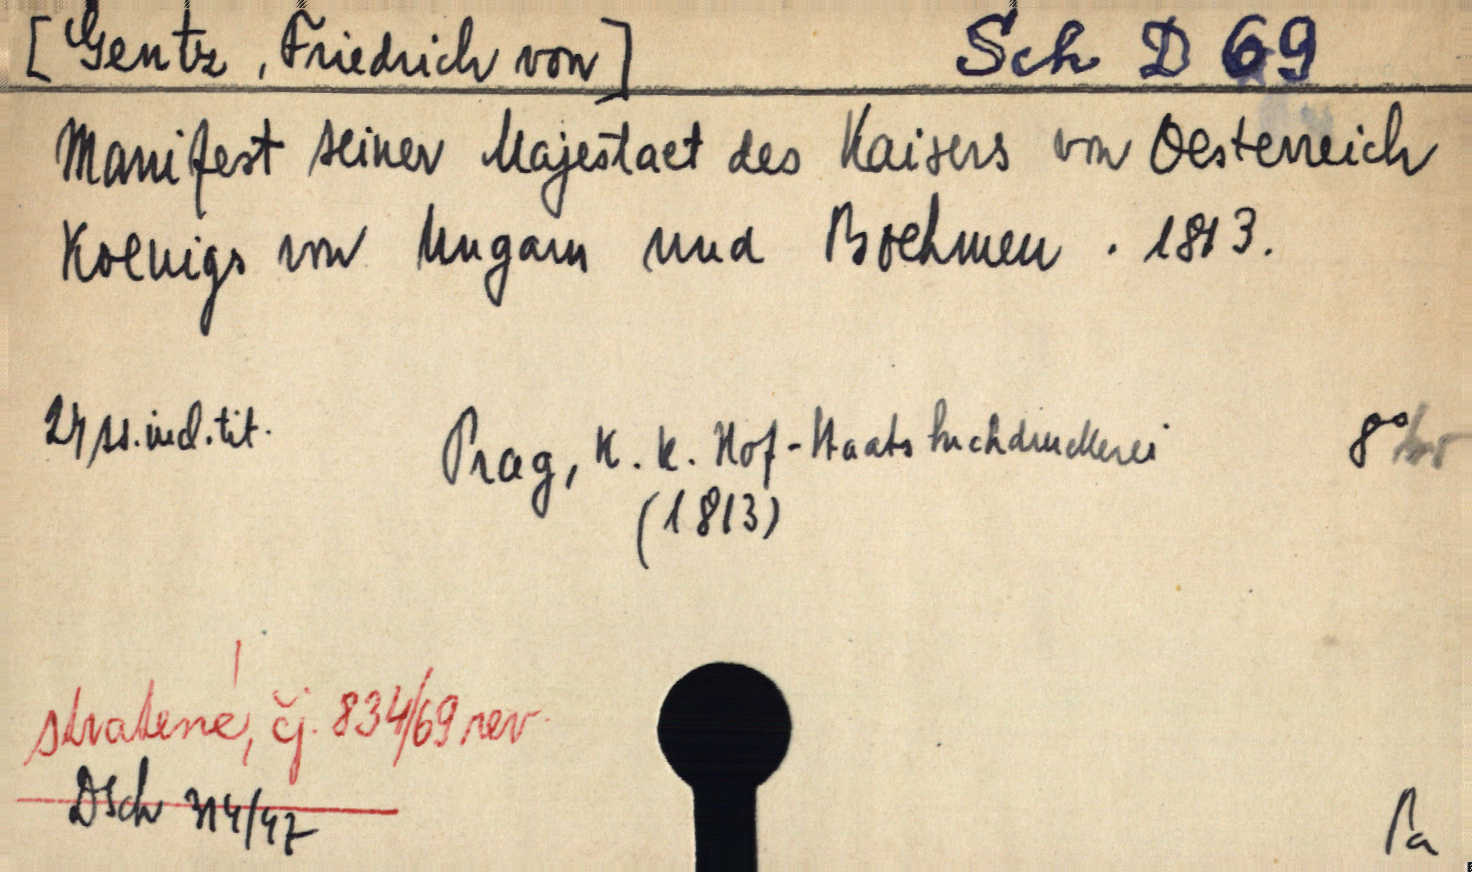 [Gentz, Friedrich von] Sch D 69
Manifest seiner Majestaet des Kaisers von Oesterreich
Koenigs von Ungarn und Boehmen. 1813.
24 ss. incl. tit. Prag, K. k. Hof-Staats buchdruckerei 8°
(1813)
stratené, čj. 834/69 rev.
DSch 314/47
Pa